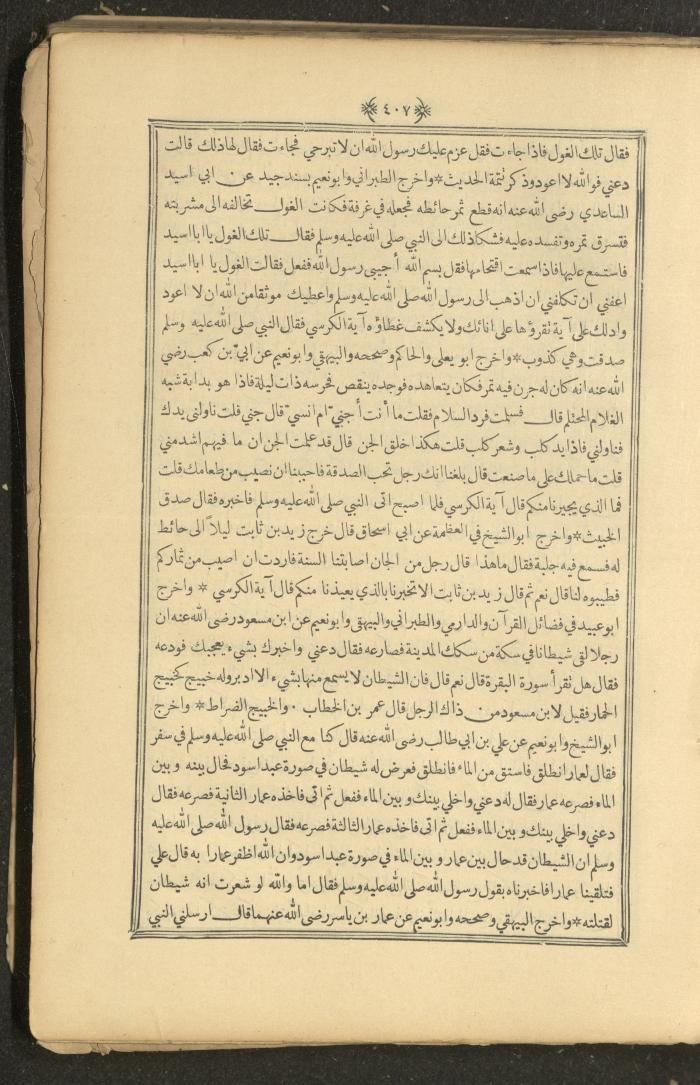 ٤٠٧
فقال تلك الغول فاذا جاءت فقل عزم عليك رسول الله ان لا تبرحي فجاءت فقال لها ذلك قالت
دعني فوالله لا اعود وذكر تتمة الحديث * واخرج الطبراني وابو نعيم بسند جيد عن ابي اسيد
الساعدي رضي الله عنه انه قطع ثمر حائطه فجعله في غرفة فكانت الغول تخالفه الى مشربته
فتسرق تمره وتفسده عليه فشكا ذلك الى النبي صلى الله عليه وسلم فقال تلك الغول يا ابا اسيد
فاستمع عليها فاذا سمعت اقتحامها فقل بسم الله أجيبي رسول الله ففعل فقالت الغول يا ابا اسيد
اعفني ان تكلفني ان اذهب الى رسول الله صلى الله عليه وسلم واعطيك موثقا من الله ان لا اعود
وادلك على آية تقرؤها على انائك ولا يكشف غطاؤه آية الكرسي فقال النبي صلى الله عليه وسلم
صدقت وهي كذوب * واخرج ابو يعلى والحاكم وصححه والبيهقي وابو نعيم عن ابيّ بن كعب رضي
الله عنه انه كان له جرن فيه تمر فكان يتعاهده فوجده ينقص فحرسه ذات ليلة فاذا هو بدابة شبه
الغلام المحتلم قال فسلمت فرد السلام فقلت ما أنت أجنيّ ام انسيّ قال جني قلت ناولني يدك
فناولني فاذا يد كلب وشعر كلب قلت هكذا خلق الجن قال قد علمت الجن ان ما فيهم اشد مني
قلت ما حملك على ما صنعت قال بلغنا انك رجل تحب الصدقة فاحببنا ان نصيب من طعامك قلت
فما الذي يجيرنا منكم قال آية الكرسي فلما اصبح اتى النبي صلى الله عليه وسلم فاخبره فقال صدق
الخبيث * واخرج ابو الشيخ في العظمة عن ابي اسحاق قال خرج زيد بن ثابت ليلاً الى حائط
له فسمع فيه جلبة فقال ما هذا قال رجل من الجان اصابتنا السنة فاردت ان اصيب من ثماركم
فطيبوه لنا قال نعم ثم قال زيد بن ثابت الا تخبرنا بالذي يعيذنا منكم قال آية الكرسي * واخرج
ابو عبيد في فضائل القرآن والدارمي والطبراني والبيهقي وابو نعيم عن ابن مسعود رضي الله عنه ان
رجلا لقى شيطانا في سكة من سكك المدينة فصارعه فقال دعني واخبرك بشيء يعجبك فودعه
فقال هل تقرأ سورة البقرة قال نعم قال فان الشيطان لا يسمع منها بشيء الا ادبر وله خبيج كخبيج
الحمار فقيل لابن مسعود من ذاك الرجل قال عمر بن الخطاب . والخبيج الضراط * واخرج
ابو الشيخ وابو نعيم عن علي بن ابي طالب رضي الله عنه قال كنا مع النبي صلى الله عليه وسلم في سفر
فقال لعمار انطلق فاستق من الماء فانطلق فعرض له شيطان في صورة عبد اسود فحال بينه وبين
الماء فصرعه عمار فقال له دعني واخلي بينك وبين الماء ففعل ثم اتى فاخذه عمار الثانية فصرعه فقال
دعني واخلي بينك وبين الماء ففعل ثم اتى فاخذه عمار الثالثة فصرعه فقال رسول الله صلى الله عليه
وسلم ان الشيطان قد حال بين عمار وبين الماء في صورة عبد اسود وان الله اظفر عمارا به قال علي
فتلقينا عمارا فاخبرناه بقول رسول الله صلى الله عليه وسلم فقال اما والله لو شعرت انه شيطان
لقتلته * واخرج البيهقي وصححه وابو نعيم عن عمار بن ياسر رضي الله عنهما قال ارسلني النبي